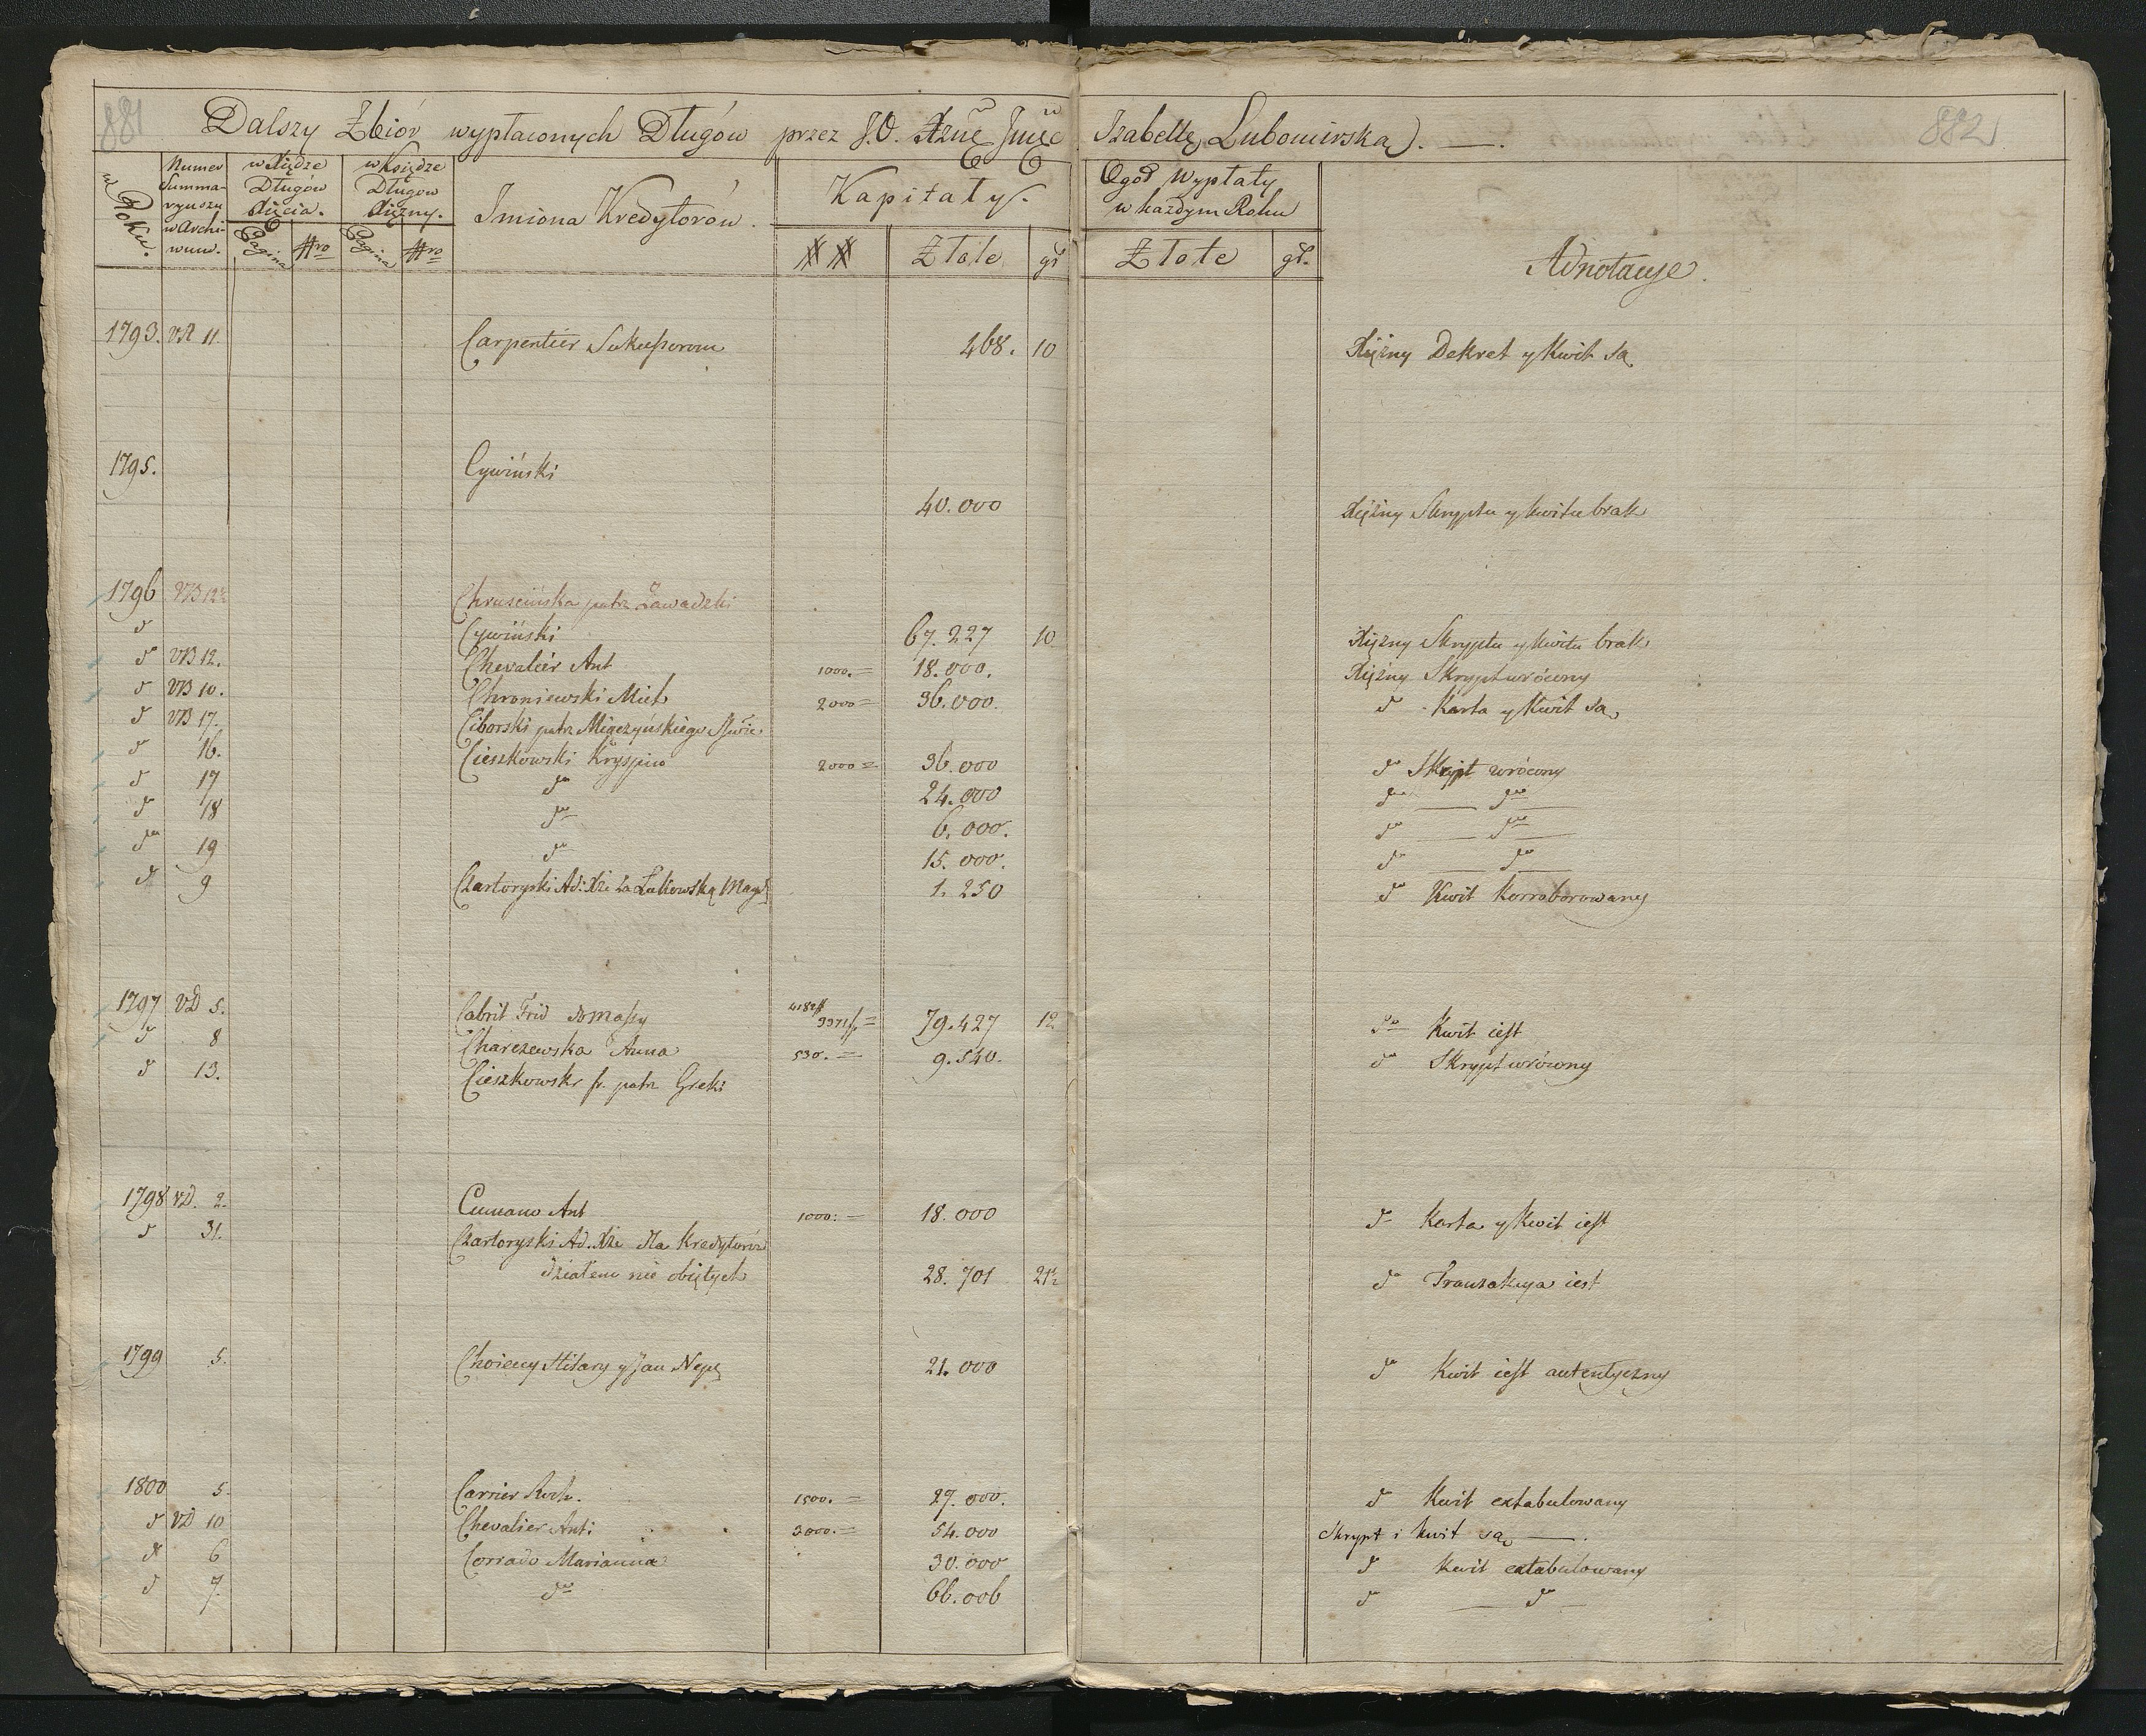 881
882
Dalszy Zbiór wypłaconych Długów przez J.O. Xznę Jmść Izabellę Lubomirską.
w Roku.
Numer Summaryuszu w Archiwum.
w Xiędze Długów Xięcia.
Pagina Nro
w Księdze Długow Xiężny.
Pagina Nro
Imiona Kredytorów.
Kapitały.
## Złote gr
Ogół Wypłaty w każdym Roku
Złote gr.
Adnotacye.
1793. VA 11. Carpentier Sukcessorom 468. 10 Xiężny Dekret y Kwit są
1795. Cywiński
40.000 Xiężny Skryptu y kwitu brak
1796 VB 12½ Chruscińska patrz Zawadzki
d Cywiński 67.227 10 Xiężny Skryptu y kwitu brak
d VB 12. Chevalier Ant 1000.= 18.000. Xiężny Skrypt wrócony
d VB 10. Chroniewski Mich 2000= 36.000. d Karta y Kwit są
d VB 17. Ciborski patrz Miączyńskiego
d 16. Cieszkowski Kryspin 2000= 36.000 do Skrypt wrócony
d 17 do 24.000 do — do —
d 18 do 6.000. do — do —
do 19 do 15.000. do do
d 9 Czartoryski Ad: Xże za Łukowską Magd 1.250 do Kwit Korroborowany
1797 VD 5. Cabrit Frid do Massy 4182# 3371# = 79.427 12 do Kwit iest
d 8 Charczewska Anna 530.= 9.540. do Skrypt wrócony
d 13. Cieszkowski fr. patrz Greki
1798 VD. 2. Cumano Ant 1000.= 18.000 d Karta y Kwit iest
d 31. Czartoryski Ad. Xże dla Kredytorów
działem nie obiętych 28.701 21½ do Tranzakcya iest
1799 5. Choieccy Hilary y Jan Nep 21.000 do Kwit iest autentyczny
1800 5. Carrier Roch. 1500.= 27.000. d Kwit extabulowany
d VD 10 Chevalier Ant: 3000.= 54.000 Skrypt i kwit są —.
d 6 Corrado Marianna 30.000 d Kwit extabulowany
d 7. do 66.006 d — d —